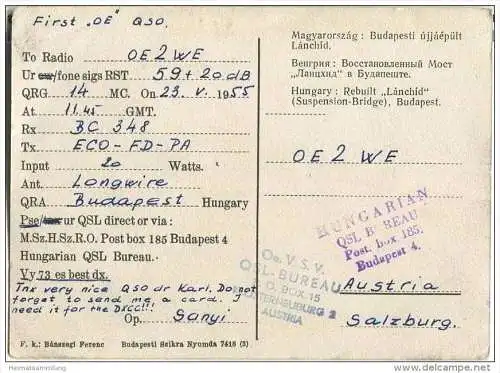 First „OE" QSO.
To Radio OE2WE
Ur cw/fone sigs RST 59+20dB
QRG 14 MC. On 23. V. 1955
At 11.45 GMT.
Rx BC 348
Tx ECO-FD-PA
Input 20 Watts.
Ant. Longwire
QRA Budapest Hungary
Pse/ ur QSL direct or via:
M.Sz.H.Sz.R.O. Post box 185 Budapest 4
Hungarian QSL Bureau.
Vy 73 es best dx.
Tnx very nice QSO dr Karl. Do not
forget to send me a card. I
need it for the DXCC!!!
Op. Sanyi
F. k.: Bánszegi Ferenc Budapesti Szikra Nyomda 7418 (3)
Magyarország: Budapesti újjáépült
Lánchíd.
Венгрия: Восстановленный Мост
„Ланцхид" в Будапеште.
Hungary: Rebuilt „Lánchíd"
(Suspension-Bridge), Budapest.
OE2WE
HUNGARIAN
QSL BUREAU
Post. box 185.
Budapest 4.
Oe. V. S. V.
QSL-BUREAU
P.O. BOX 15
KLOSTERNEUBURG 2
AUSTRIA
Austria
Salzburg.